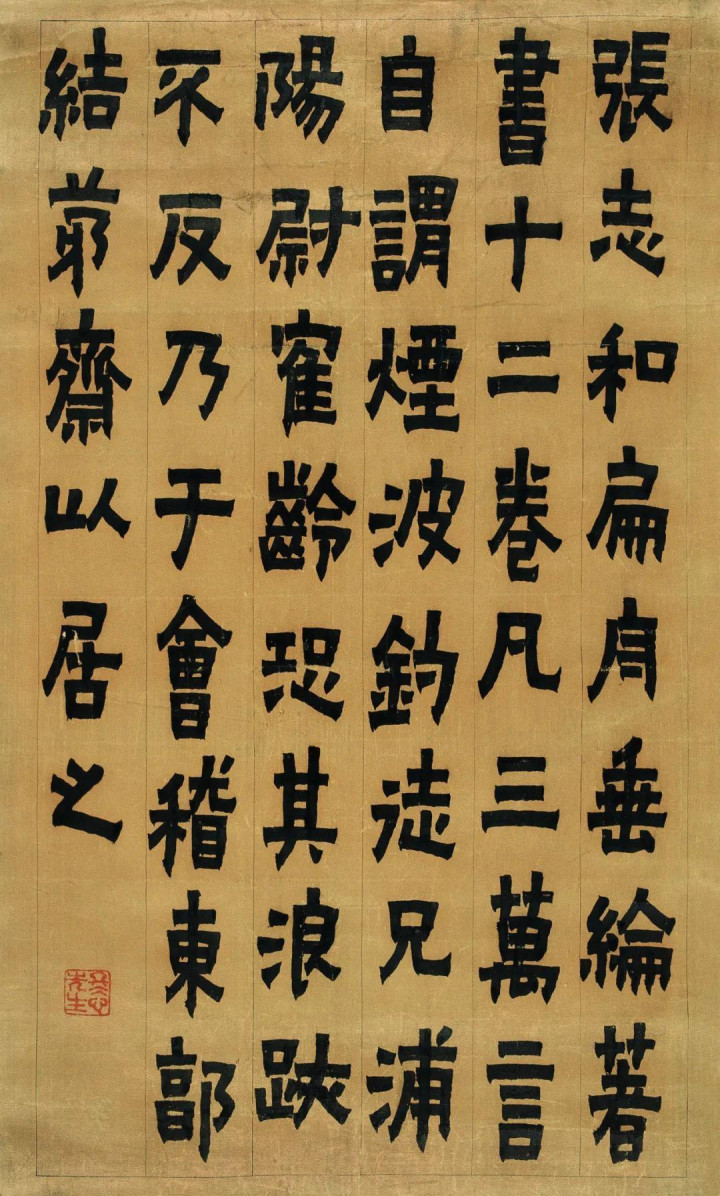 張志和扁舟垂綸著
書十二卷凡三萬言
自謂煙波釣徒兄浦
陽尉寉齡恐其浪跡
不反乃于會稽東郭
結茆齋以居之
冬心先生